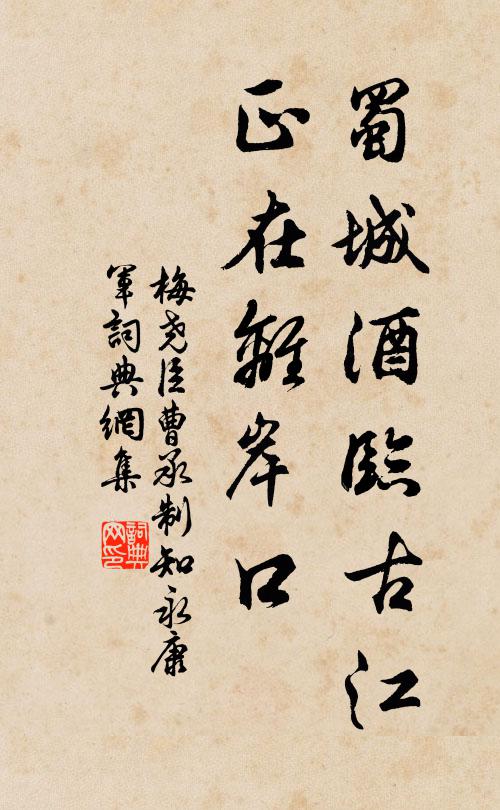 蜀城酒臨古江
正在離岸口
梅堯臣曹承制知永康
軍詞典網集
詞典
网印